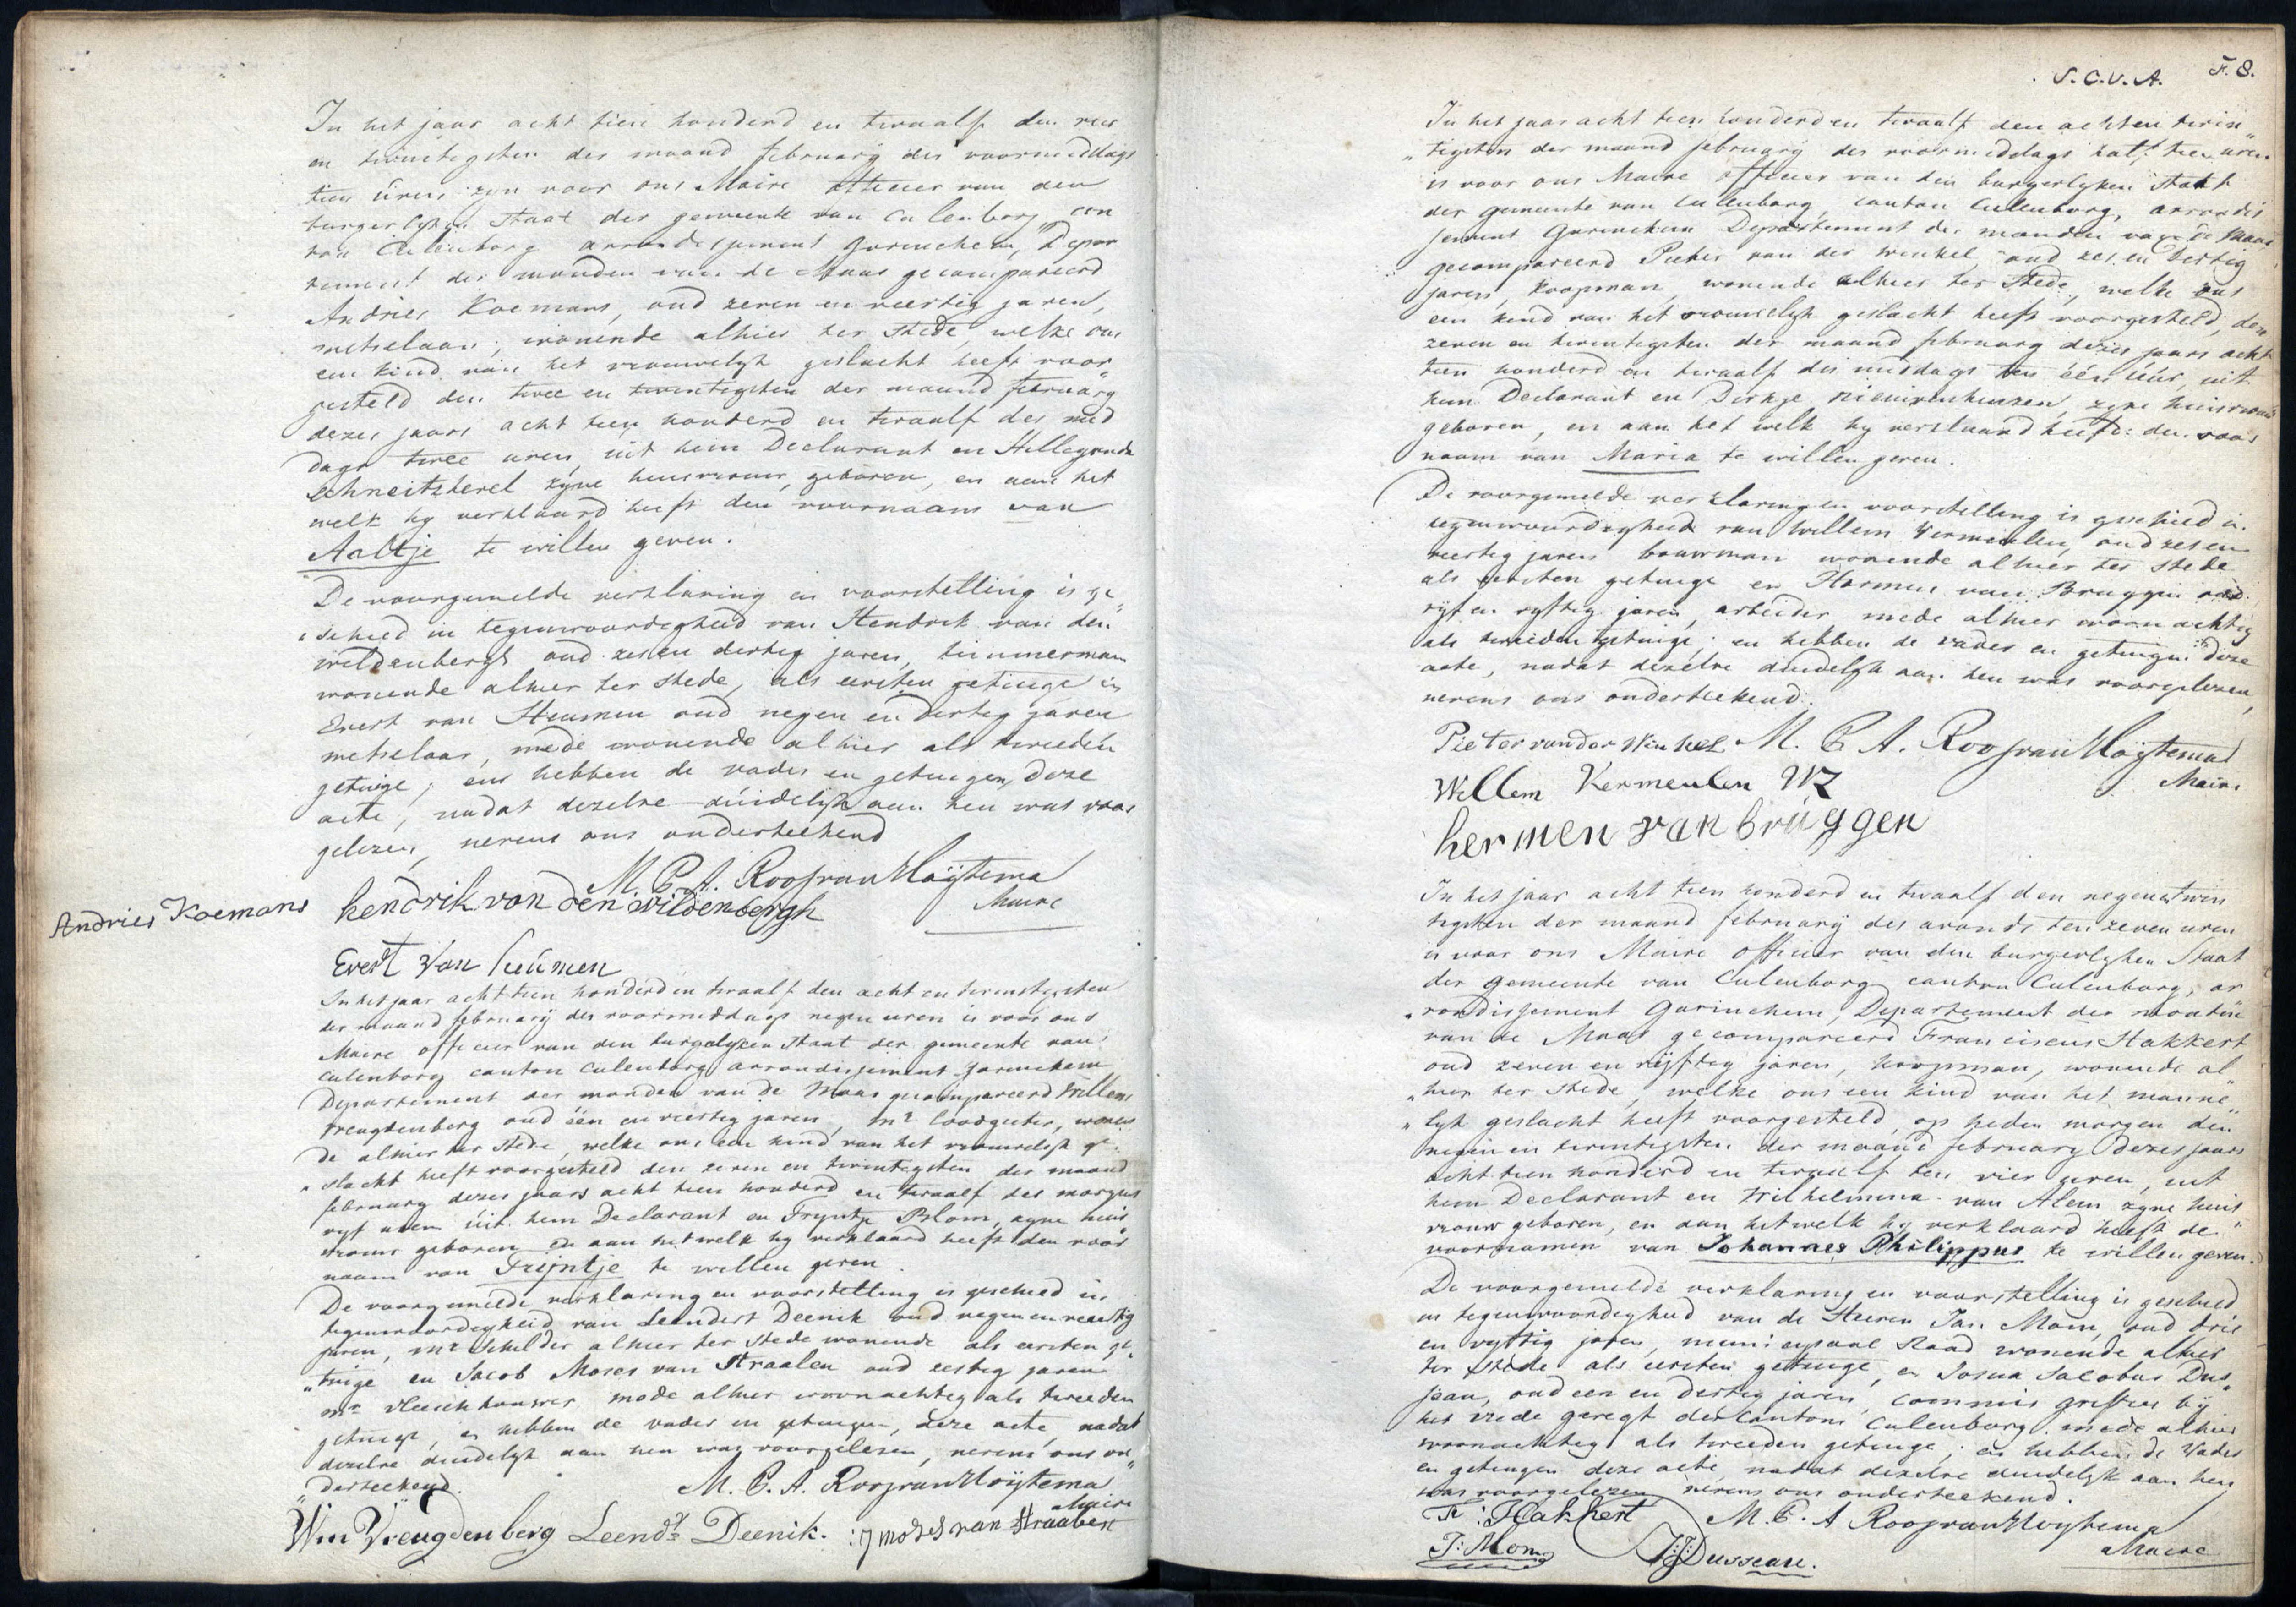 In het jaar acht tien honderd en twaalf den vier
en twintigsten der maand february des voormiddags
tien úren zyn voor ons Maire officier van den
burgerlyken Staat der gemeente van Culenborg, can
ton Culenborg arrondissement Gorinchem, Depar
tement der monden van de Maas gecompareerd
Andries Koemans, oud zeven en veertig jaren,
metselaar, wonende alhier ter stede, welke ons
een kind van het vrouwelyk geslacht heeft voor
gesteld den twee en twintigsten der maand february
dezes jaars acht tien honderd en twaalf des mid
dags twee uren, uit hem Declarant en Hillegonda
Schneitzherel zyne huisvrouw, geboren, en aan het
welk hy verklaard heeft den voornaam van
Aaltje te willen geven.
De voorgemelde verklaring en voorstelling is ge„
„schied in tegenwoordigheid van Hendrik van den
wildenbergh oud zes en dertig jaren, timmerman
wonende alhier ter stede, als eersten getuige en
Evert van Heumen oud negen en dertig jaren
metselaar, mede wonende alhier als tweeden
getuige; en hebben de vader en getuigen, deze
acte, nadat dezelve duidelyk aan hen was voor
gelezen, nevens ons onderteekend
M. C. A. Roos van Hoÿtema
Maire
Andries Koemans
hendrik van den wildenbergh
Evert Van heúmen
In het jaar acht tien honderd en twaalf den acht en twintigsten
der maand february des voormiddags negen uren is voor ons
Maire officier van den burgelyken Staat der gemeente van
Culenborg canton Culenborg arrondissement Gorinchem
Departement der monden van de Maas gecompareerd Willem
Vreugdenberg oud één en veertig jaren, mr loodgieter, wonen
de alhier ter stede, welke ons een kind van het vrouwelyk ge„
„slacht heeft voorgesteld den zeven en twintigsten der maand
february dezes jaars acht tien honderd en twaalf des morgens
vyf uren uit hem Declarant en Tryntje Blom, zyne huis
vrouw geboren en aan het welk hy verklaard heeft den voor
naam van Trijntje te willen geven.
De voorgemelde verklaring en voorstelling is geschied in
tegenwoordigheid van Leendert Deenik oud negen en veertig
jaren, mr Schilder alhier ter stede wonende als eersten ge„
„tuige en Jacob Moses van Straalen oud zestig jaren
mr vleeschhouwer mede alhier woonachtig als tweeden
getuige, en hebben de vader en getuigen, deze acte, nadat
dezelve duidelyk aan hen was voorgelezen, nevens ons on„
„derteekend.
M. C. A. Roos van Hoÿtema
Maire
Wm Vreugdenberg Leendt Deenik. :J moses van Straalen
S. C. V. A. F. 8.
In het jaar acht tien honderd en twaalf den achten twin„
„tigsten der maand february des voormiddags half tien uren
is voor ons Maire officier van den burgerlyken Staat
der gemeente van Culenborg, canton Culenborg, arrondis
sement Gorinchem Departement der monden van de Maas
gecompareerd Pieter van der Winkel, oud zes en dertig
jaren, koopman, wonende alhier ter stede, welke ons
een kind van het vrouwelyk geslacht heeft voorgesteld, den
zeven en twintigsten der maand february dezes jaars acht
tien honderd en twaalf des middags ten één úúr, uit
hem Declarant en Dirkje Nieuwenhuizen, zyne huisvrouw
geboren, en aan het welk hy verklaard heeft den voor
naam van Maria te willen geven.
De voorgemelde verklaring en voorstelling is geschied in
tegenwoordigheid van Willem Vermeulen, oud zes en
veertig jaren bouwman wonende alhier ter stede
als eersten getuige en Harmen van Bruggen oud
vyf en vyftig jaren, arbeider mede alhier woonachtig
als tweeden getuige; en hebben de vader en getuigen deze
acte, nadat dezelve duidelyk aan hen was voorgelezen,
nevens ons onderteekend.
Pieter van der Winkel M. C. A. Roos van Hoÿtema
Maire
Willem Vermeulen WZ
hermen van brúggen
In het jaar acht tien honderd en twaalf den negen en twin
tigsten der maand february des avonds ten zeven uren
is voor ons Maire officier van den burgerlyken Staat
der gemeente van Culenborg canton Culenborg, ar
„rondissement Gorinchem, Departement der monden
van de Maas gecompareerd Franciscus Hakkert
oud zeven en vijftig jaren, koopman, wonende al
„hier ter stede, welke ons een kind van het manne„
„lyk geslacht heeft voorgesteld, op heden morgen den
negen en twintigsten der maand february dezes jaars
acht tien honderd en twaalf ten vier uren, uit
hem Declarant en Wilhelmina van Alem zyne huis
vrouw geboren, en aan het welk hy verklaard heeft de
voornamen van Johannes Philippus te willen geven.
De voorgemelde verklaring en voorstelling is geschied
in tegenwoordigheid van de Heeren Jan Mom, oud drie
en vyftig jaren, municipaal Raad wonende alhier
ter stede als eersten getuige, en Josua Jacobus Dus„
seau, oud een en dertig jaren, commis griffier by
het vrede geregt des Cantons Culenborg mede alhier
woonachtig als tweeden getuige; en hebben de Vader
en getuigen deze acte nadat dezelve duidelyk aan hen
was voorgelezen nevens ons onderteekend.
Fr: Hakkert M. C. A Roos van Hoytema
Maire
J: Mom JJ: Dusseau.